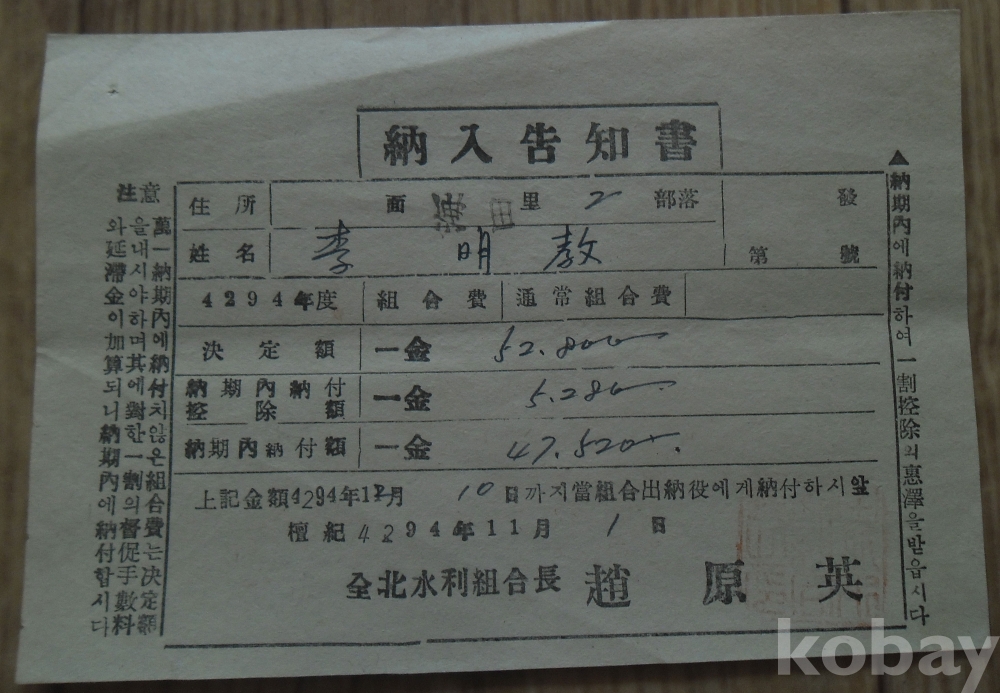 納入告知書
▲納期內에納付하여一割控除의惠澤을받읍시다
住所 面 里 2 部落 發
姓名 李明敎 第 號
4294年度 組合費 通常組合費
決定額 一金 52.800
納期內納付控除額 一金 5.280
納期內納付額 一金 47.520
上記金額4294年12月10日까지當組合出納役에게納付하시앞
檀紀4294年11月1日
全北水利組合長 趙原英
注意
萬一納期內에納付치않은組合費는決定額
을내시야하며其에對한一割의督促手數料
와延滯金이加算되니納期內에納付합시다
kobay